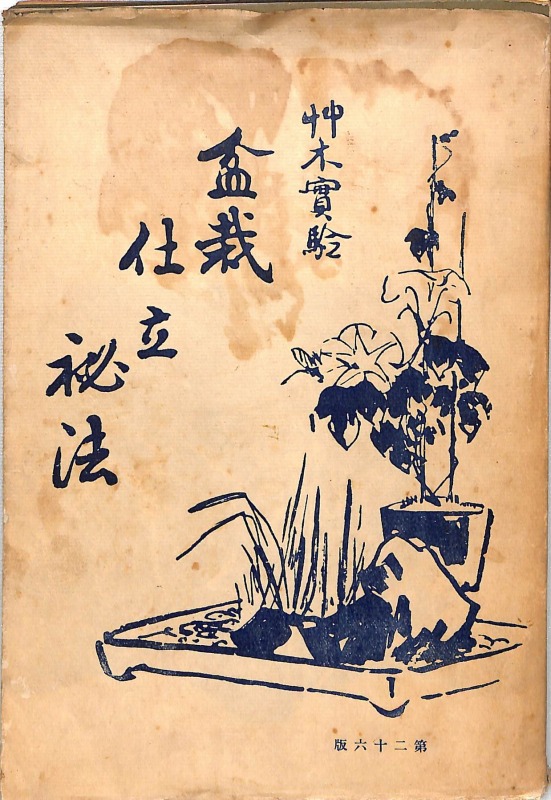 艸木實驗
盆栽
仕立
祕法
第二十六版